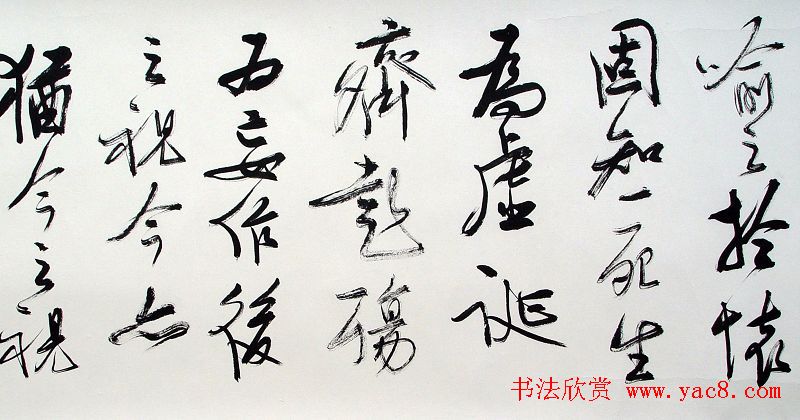 喻之於懷
固知一死生
為虛誕
齊彭殤
為妄作後
之視今亦
猶今之視
书法欣赏 www.yac8.com